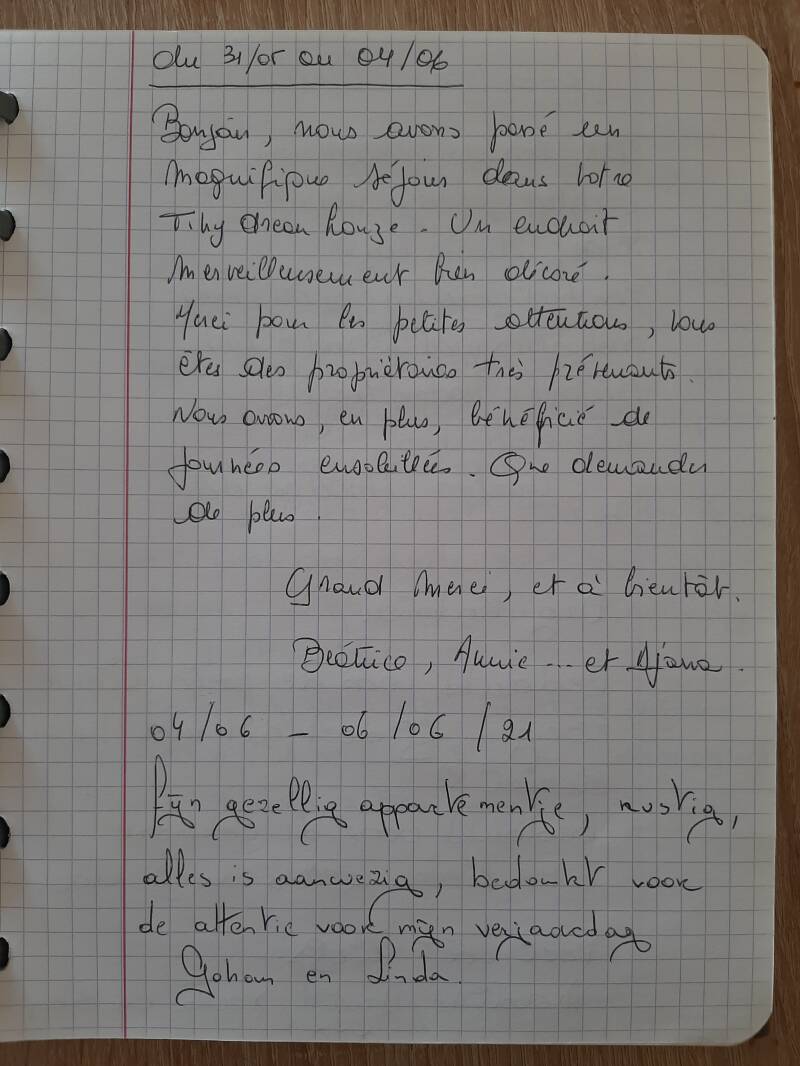 du 31/05 au 04/06
Bonjour, nous avons passé un
magnifique séjour dans votre
Tihy dream houze. Un endroit
merveilleusement bien décoré.
Merci pour les petites attentions, vous
êtes des propriétaires très prévenants.
Nous avons, en plus, bénéficié de
journées ensoleillées. Que demander
de plus.
Grand merci, et à bientôt.
Béatrice, Annie ... et
04/06 - 06/06/21
Fijn gezellig appartementje, rustig,
alles is aanwezig, bedankt voor
de attentie voor mijn verjaardag
Johan en Linda.